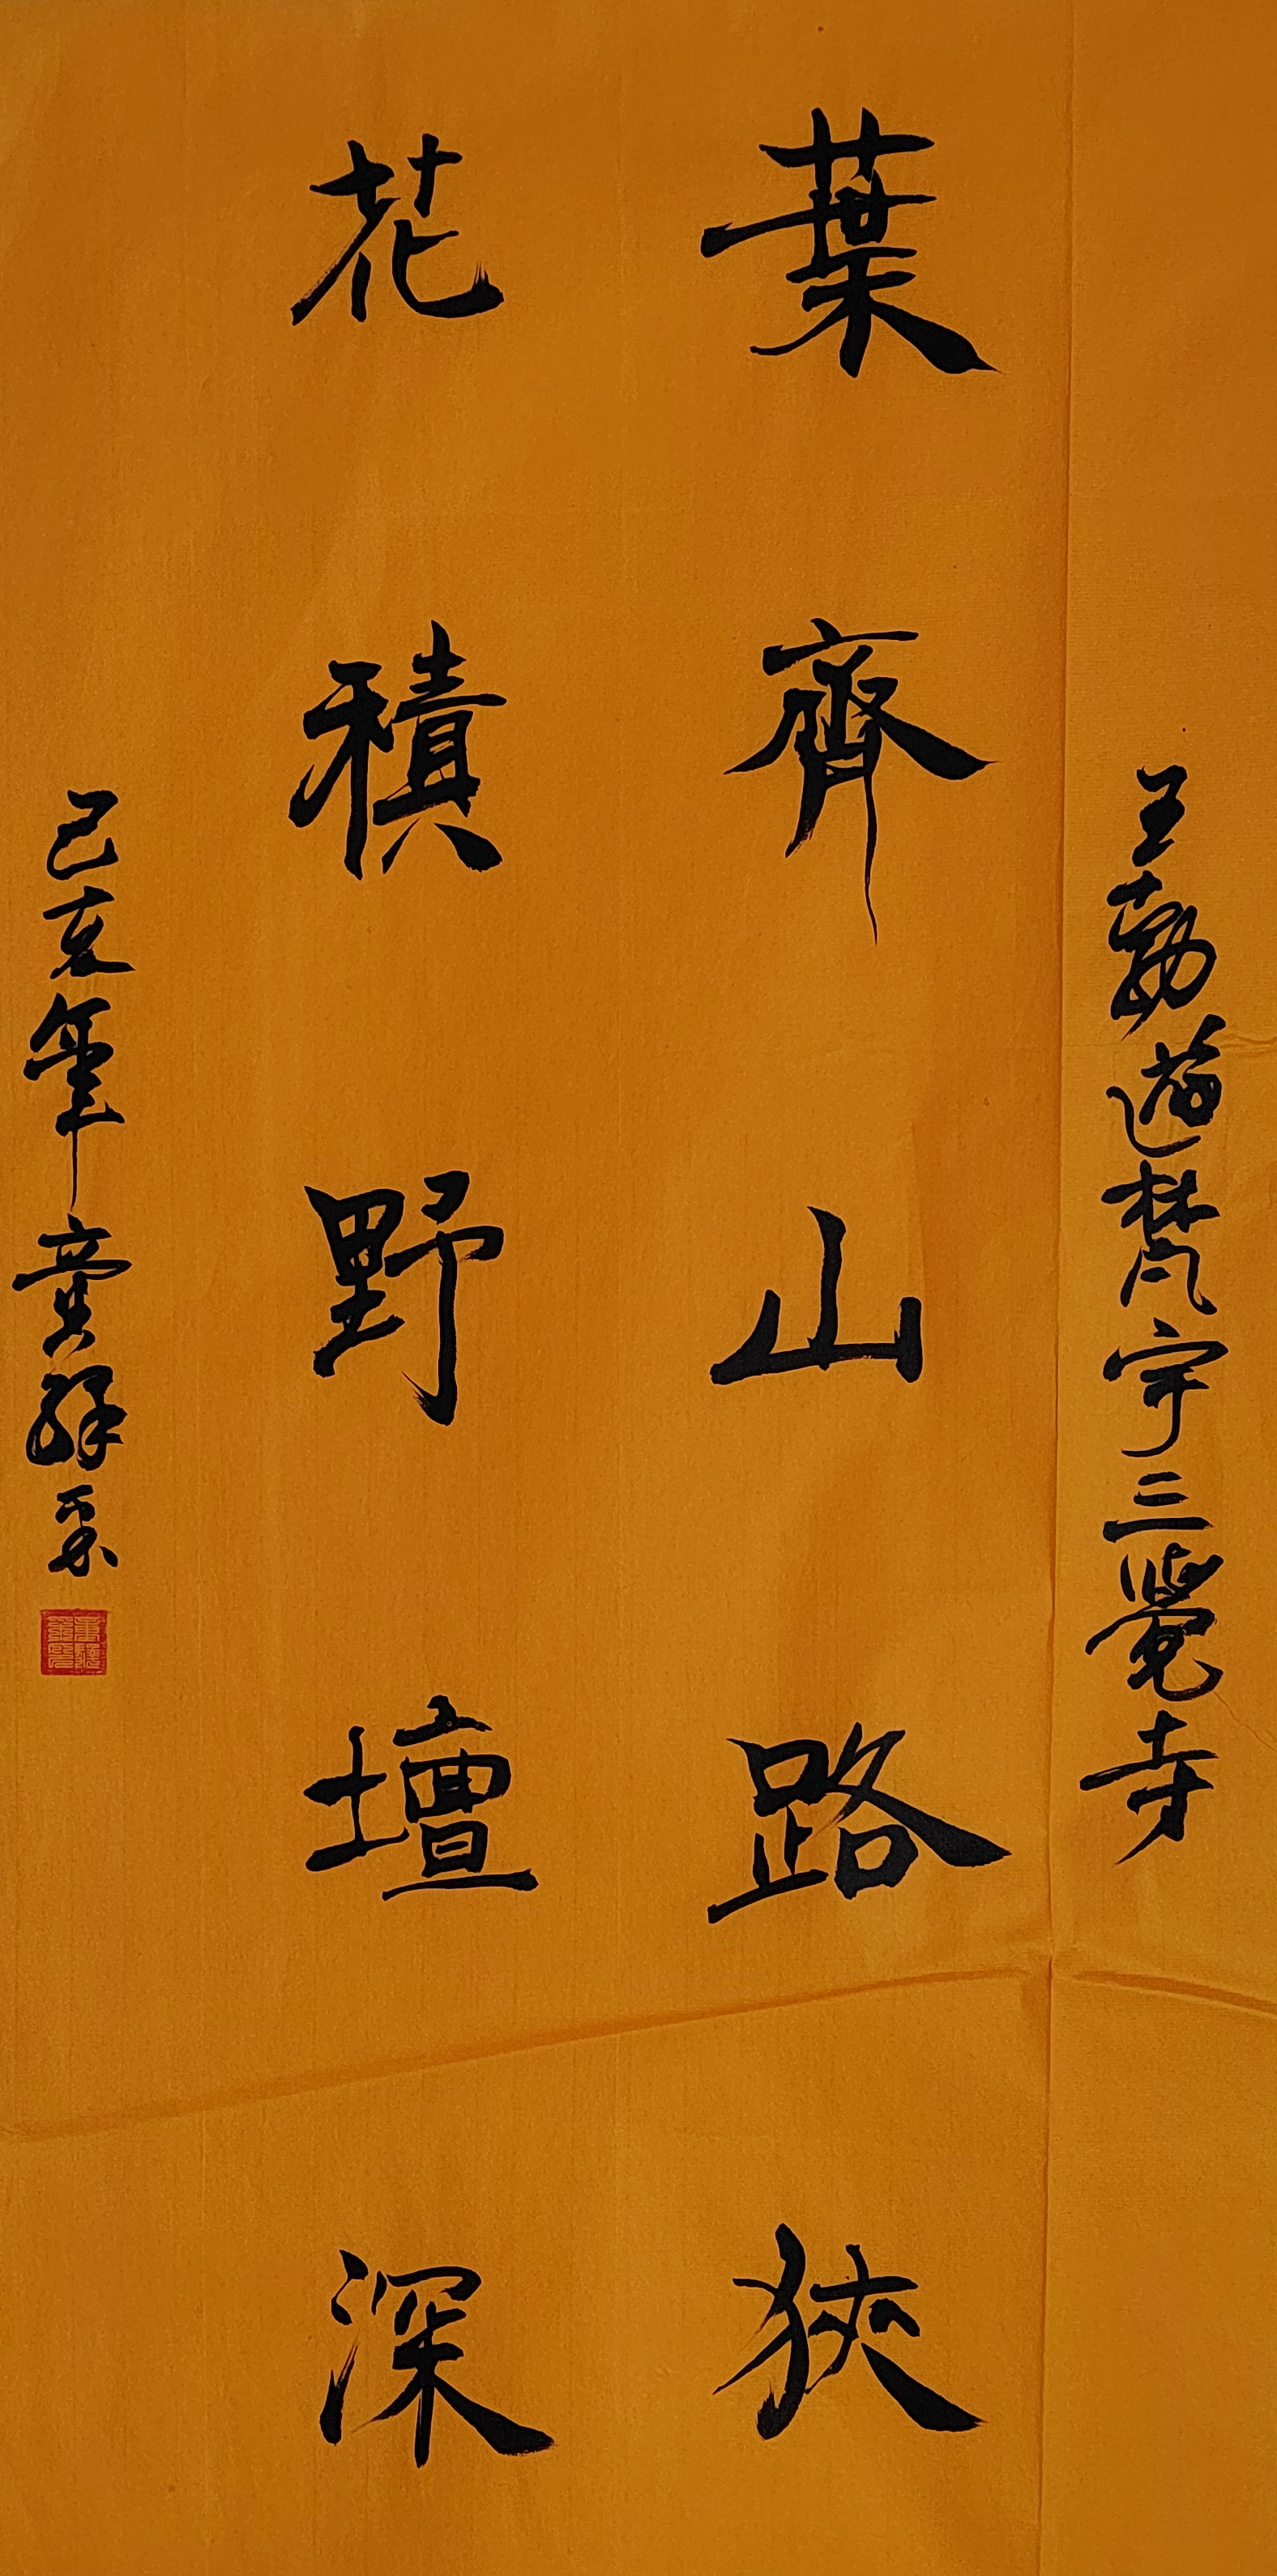 王勃遊梵宇三覺寺
葉齊山路狹
花積野壇深
己亥年